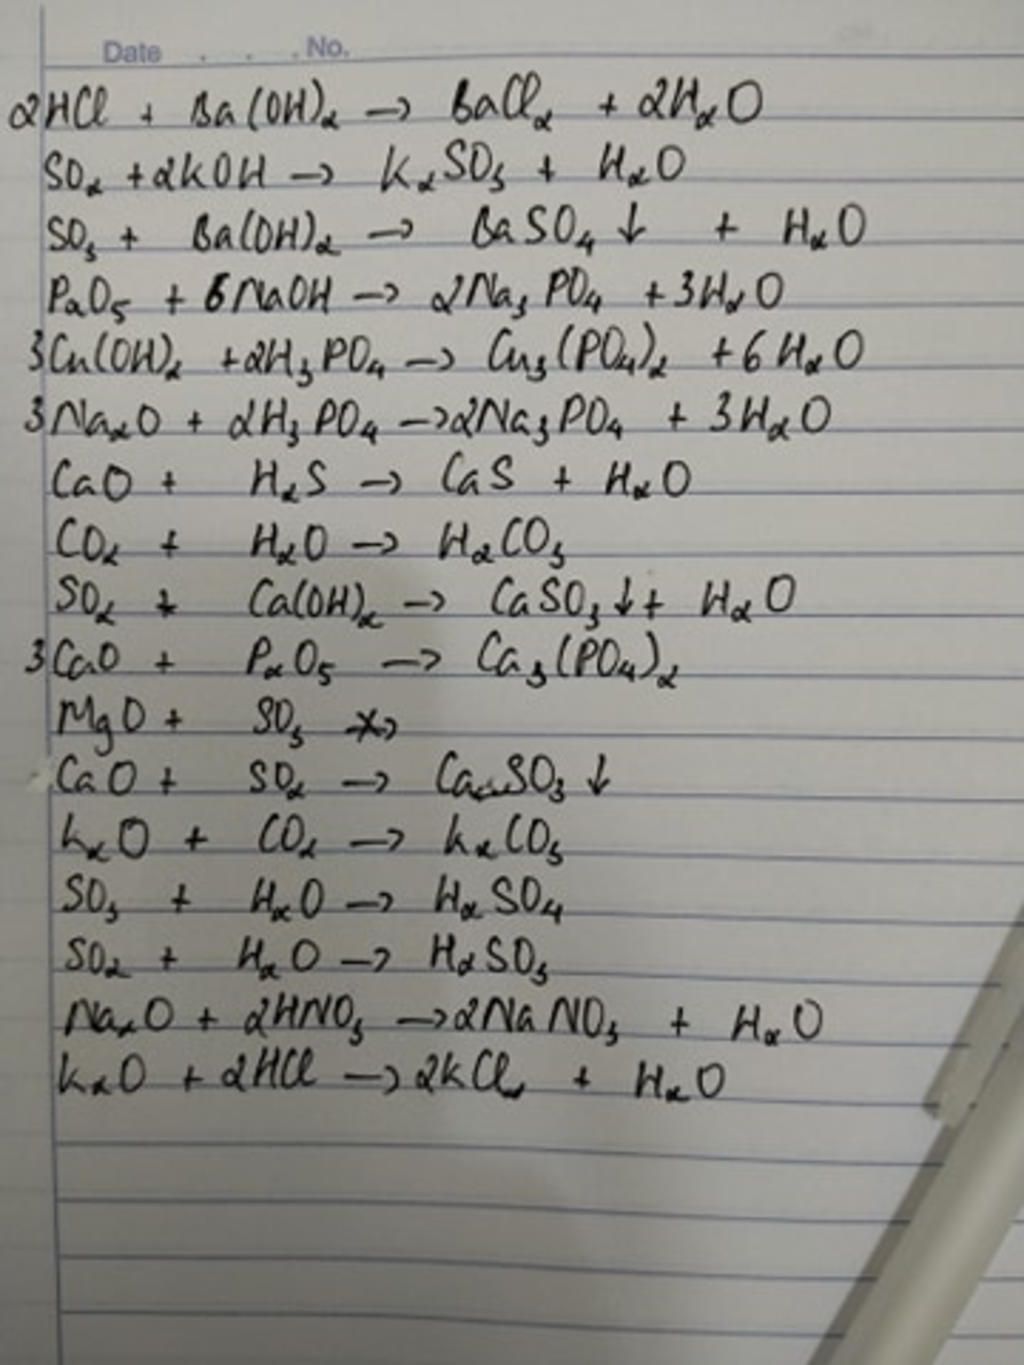 Date . . . No.
2HCl + Ba(OH)₂ → BaCl₂ + 2H₂O
SO₂ + 2KOH → K₂SO₃ + H₂O
SO₃ + Ba(OH)₂ → BaSO₄ ↓ + H₂O
P₂O₅ + 6NaOH → 2Na₃PO₄ + 3H₂O
3Cu(OH)₂ + 2H₃PO₄ → Cu₃(PO₄)₂ + 6H₂O
3Na₂O + 2H₃PO₄ → 2Na₃PO₄ + 3H₂O
CaO + H₂S → CaS + H₂O
CO₂ + H₂O → H₂CO₃
SO₂ + Ca(OH)₂ → CaSO₃ ↓ + H₂O
3CaO + P₂O₅ → Ca₃(PO₄)₂
MgO + SO₃ ↛
CaO + SO₂ → CaSO₃ ↓
K₂O + CO₂ → K₂CO₃
SO₃ + H₂O → H₂SO₄
SO₂ + H₂O → H₂SO₃
Na₂O + 2HNO₃ → 2NaNO₃ + H₂O
K₂O + 2HCl → 2KCl + H₂O